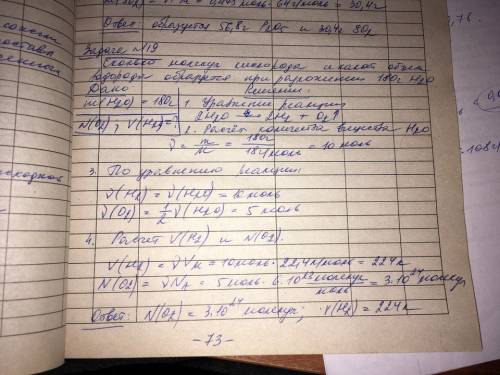 = 0,475 моль · 64 г/моль = 30,4г
Ответ: образуется 56,8г P2O5 и 30,4г SO2
Задача №19
Сколько молекул кислорода и какой объём
водорода образуется при разложении 180г H2O
Дано Решение.
m(H2O) = 180г 1. Уравнение реакции
N(O2), V(H2)=? 2H2O = 2H2 + O2↑
2. Расчёт количества вещества H2O
ν = m/M = 180г/18г/моль = 10 моль
3. По уравнению реакции
ν(H2) = ν(H2O) = 10 моль
ν(O2) = 1/2 ν(H2O) = 5 моль
4. Расчет V(H2) и N(O2).
V(H2) = νVм = 10 моль · 22,4 л/моль = 224л
N(O2) = νNA = 5 моль · 6·10^23 молекул/моль = 3·10^24 молекул
Ответ: N(O2) = 3·10^24 молекул; v(H2) = 224л
-73-